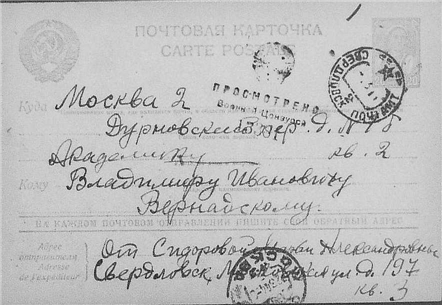 ПОЧТОВАЯ КАРТОЧКА
CARTE POSTALE
ПРОСМОТРЕНО
Военной Цензурой
СВЕРДЛОВСК
Куда Москва 2
Дурновский пер. д. №
Академику кв. 2
Кому Владимиру Ивановичу
Вернадскому.
НА КАЖДОМ ПОЧТОВОМ ОТПРАВЛЕНИИ ПИШИТЕ СВОЙ ОБРАТНЫЙ АДРЕС
Адрес отправителя
Adresse de l'expéditeur
От Сидоровой Александровны
Свердловск, ул. д. 197
кв. 3
МОСКВА